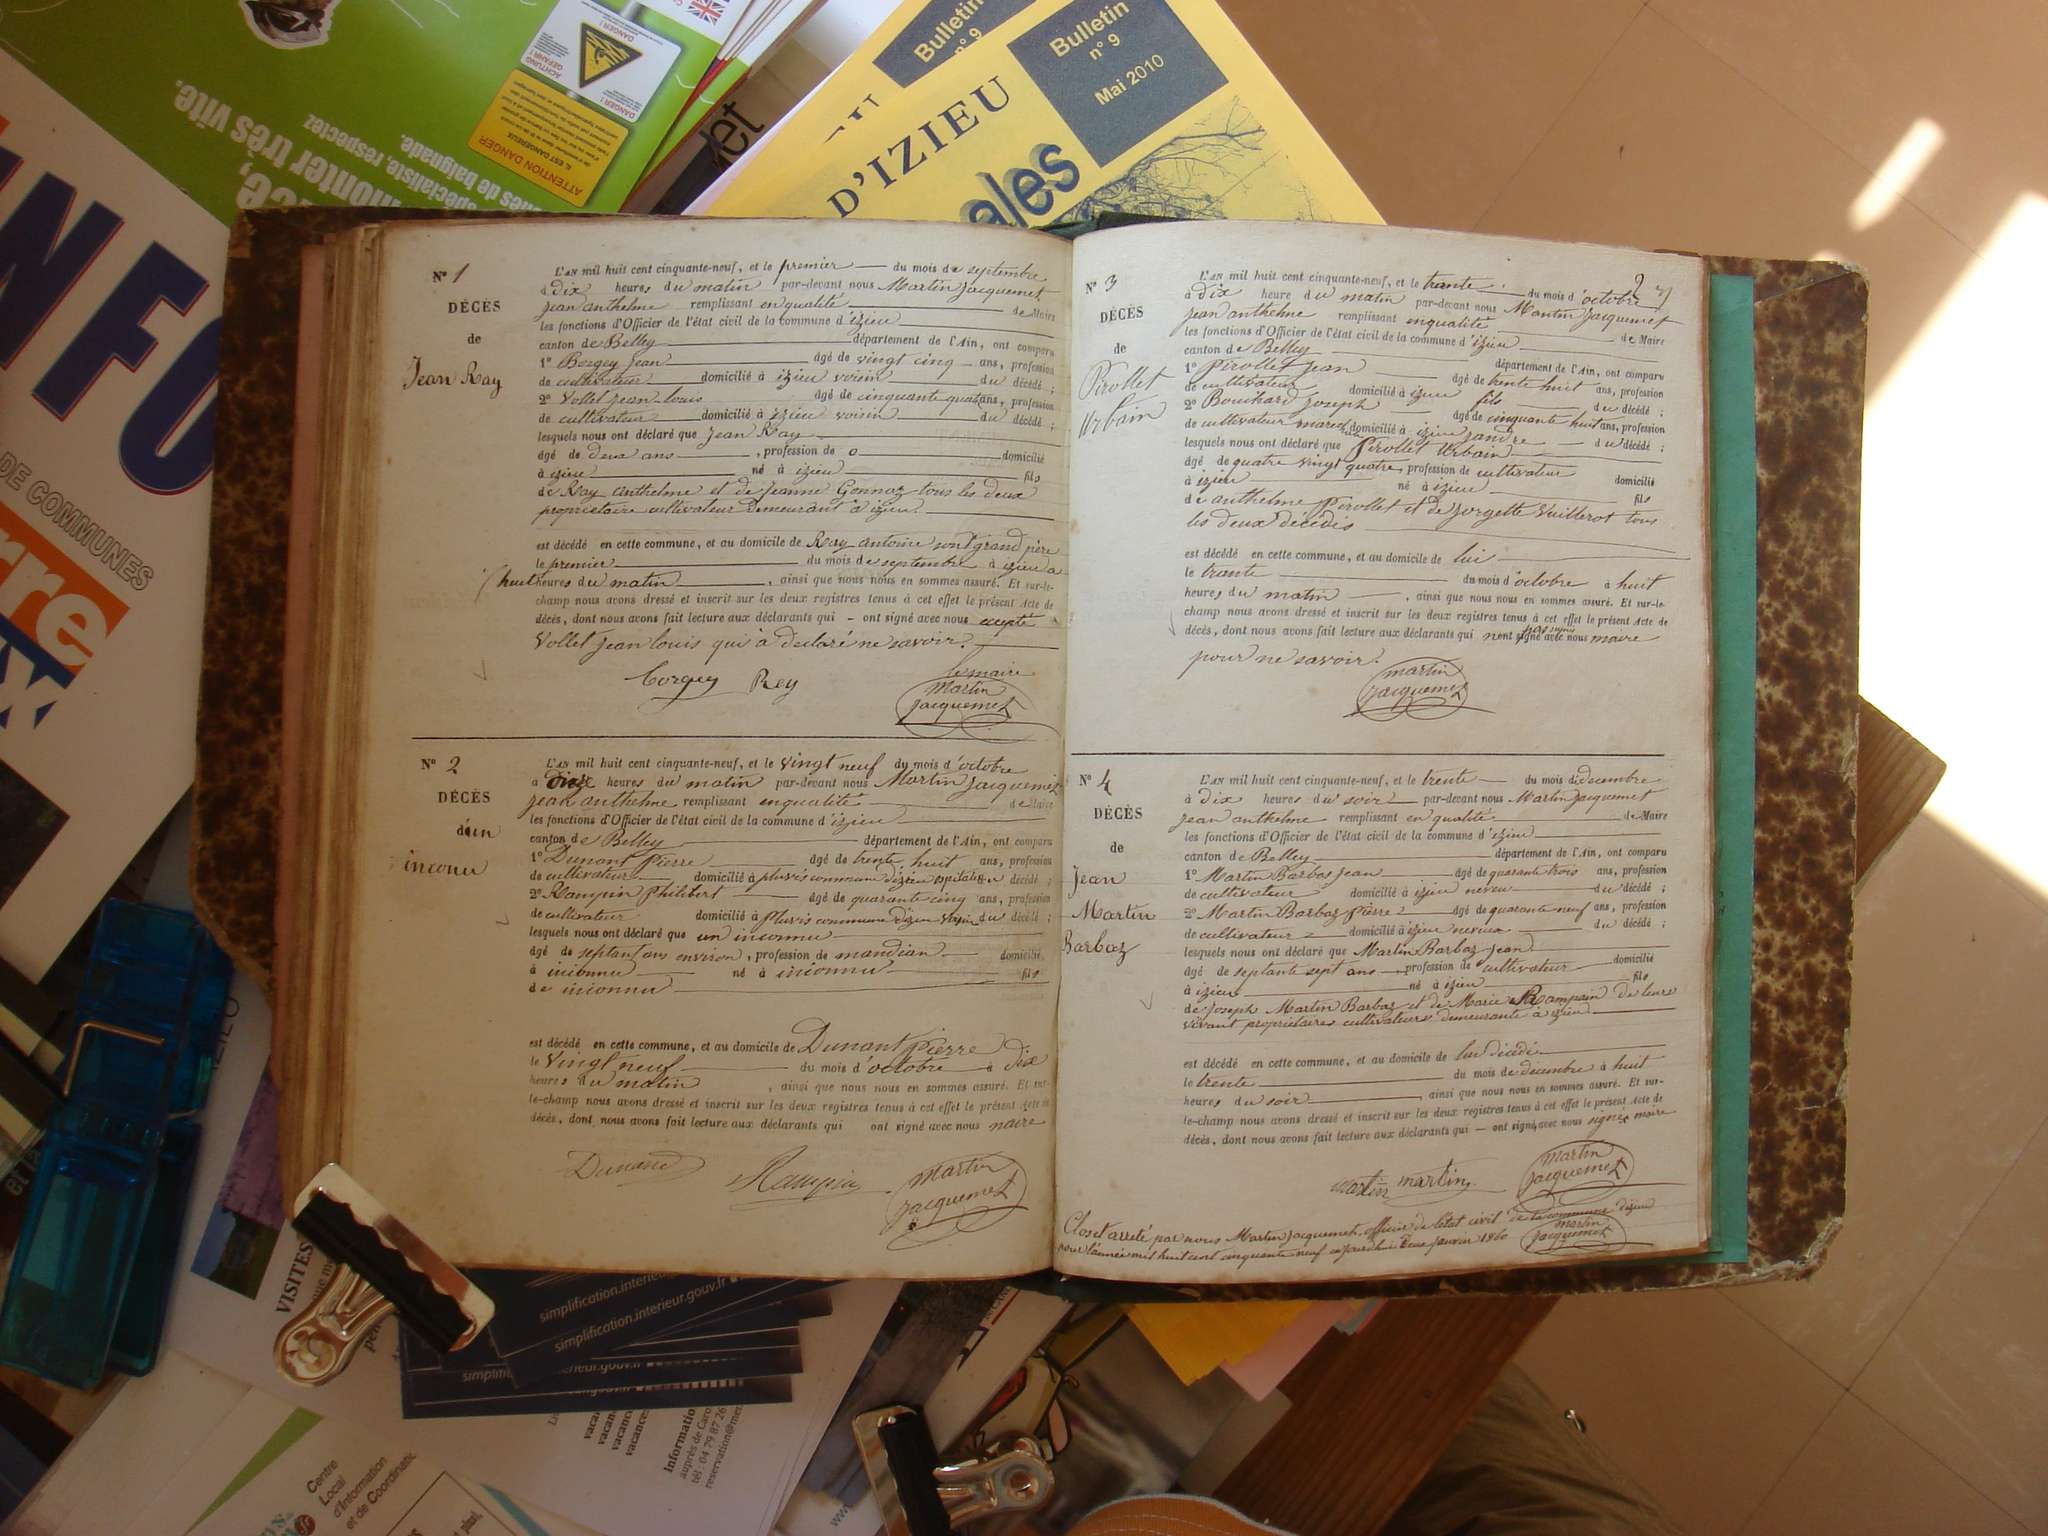 Bulletin
n° 9
Bulletin
n° 9
Mai 2010
D'IZIEU
ales
ATTENTION DANGER
IL EST DANGEREUX
ACHTUNG GEFAHR !
DANGER !
monter très vite.
spécialiste, respectez
de baignade.
INFO
DE COMMUNES
N° 1
DÉCÈS
de
Jean Ray
L'AN mil huit cent cinquante-neuf, et le premier du mois de septembre
à dix heures du matin par-devant nous Martin Jacquemet
jean anthelme remplissant en qualité de Maire
les fonctions d'Officier de l'état civil de la commune d'izieu
canton de Belley département de l'Ain, ont comparu
1° Borgey jean âgé de vingt cinq ans, profession
de cultivateur domicilié à izieu voisin du décédé ;
2° Vollet jean louis âgé de cinquante quat ans, profession
de cultivateur domicilié à izieu voisin du décédé ;
lesquels nous ont déclaré que Jean Ray
âgé de deux ans , profession de o domicilié
à izieu né à izieu fils
de Ray anthelme et de jeanne Gonnoz tous les deux
propriétaire cultivateur Demeurant à izieu.
est décédé en cette commune, et au domicile de Ray antoine sont grand père
le premier du mois de septembre à izieu a
huit heures du matin , ainsi que nous nous en sommes assuré. Et sur-le-
champ nous avons dressé et inscrit sur les deux registres tenus à cet effet le présent Acte de
décès, dont nous avons fait lecture aux déclarants qui - ont signé avec nous excepté
Vollet jean louis qui à declaré ne savoir.
Borgey Rey le maire
Martin
Jacquemet
N° 2
DÉCÈS
d'un
inconu
L'AN mil huit cent cinquante-neuf, et le vingt neuf du mois d'octobre
à onze heures du matin par-devant nous Martin Jacquemet
jean anthelme remplissant en qualité de Maire
les fonctions d'Officier de l'état civil de la commune d'izieu
canton de Belley département de l'Ain, ont comparu
1° Dunant Pierre âgé de trente huit ans, profession
de cultivateur domicilié à pluvis commune dizieu décédé ;
2° Rampin Philibert âgé de quarante cinq ans, profession
de cultivateur domicilié à pluvis commune dizieu voisin du décédé ;
lesquels nous ont déclaré que un inconnu
âgé de septant ans environ, profession de mandian domicilié
à inconnu né à inconnu fils
de inconnu
est décédé en cette commune, et au domicile de Dunant Pierre
le vingt neuf du mois d'octobre à dix
heures du matin , ainsi que nous nous en sommes assuré. Et sur-
le-champ nous avons dressé et inscrit sur les deux registres tenus à cet effet le présent Acte de
décès, dont nous avons fait lecture aux déclarants qui ont signé avec nous maire
Dunand Rampin Martin
Jacquemet
N° 3
DÉCÈS
de
Pirollet
Urbain
L'AN mil huit cent cinquante-neuf, et le trante du mois d'octobre
à dix heure du matin par-devant nous Martin Jacquemet
jean anthelme remplissant en qualité de Maire
les fonctions d'Officier de l'état civil de la commune d'izieu
canton de Belley département de l'Ain, ont comparu
1° Pirollet jean âgé de trente huit ans, profession
de cultivateur domicilié à izieu fils du décédé ;
2° Bouchard joseph âgé de cinquante huit ans, profession
de cultivateur domicilié à izieu jandre du décédé ;
lesquels nous ont déclaré que Pirollet Urbain
âgé de quatre vingt quatre, profession de cultivateur domicilié
à izieu né à izieu fils
de anthelme Pirollet et de jorgette Vuillerot tous
les deux décédés
est décédé en cette commune, et au domicile de lui
le trante du mois d'octobre à huit
heures du matin , ainsi que nous nous en sommes assuré. Et sur-le-
champ nous avons dressé et inscrit sur les deux registres tenus à cet effet le présent Acte de
décès, dont nous avons fait lecture aux déclarants qui n'ont pas signé avec nous maire
pour ne savoir.
martin
jacquemet
N° 4
DÉCÈS
de
Jean
Martin
Barbaz
L'AN mil huit cent cinquante-neuf, et le trente du mois de decembre
à dix heures du soir par-devant nous Martin Jacquemet
jean anthelme remplissant en qualité de Maire
les fonctions d'Officier de l'état civil de la commune d'izieu
canton de Belley département de l'Ain, ont comparu
1° Martin Barbaz jean âgé de quarante trois ans, profession
de cultivateur domicilié à izieu neveu du décédé ;
2° Martin Barbaz Pierre âgé de quarante neuf ans, profession
de cultivateur domicilié à izieu neveu du décédé ;
lesquels nous ont déclaré que Martin Barbaz Jean
âgé de septante sept ans , profession de cultivateur domicilié
à izieu né à izieu fils
de joseph Martin Barbaz et de Marie Rampain de leurs
vivant propriétaires cultivateurs demeurante à izieu
est décédé en cette commune, et au domicile de lui décédé
le trente du mois de decembre à huit
heures du soir , ainsi que nous nous en sommes assuré. Et sur-
le-champ nous avons dressé et inscrit sur les deux registres tenus à cet effet le présent Acte de
décès, dont nous avons fait lecture aux déclarants qui - ont signé avec nous maire
martin martin martin
jacquemet
Clos et arreté par nous Martin jacquemet officier de l'état civil de la commune dizieu
pour l'année mil huit cent cinquante neuf aujourdhui janvier 1860
martin
jacquemet
VISITES
simplification.interieur.gouv.fr
simplification.interieur.gouv.fr
Information
auprès de
tél : 04 79 87 26
reservation@
Centre
Local
d'Information
et de Coordination